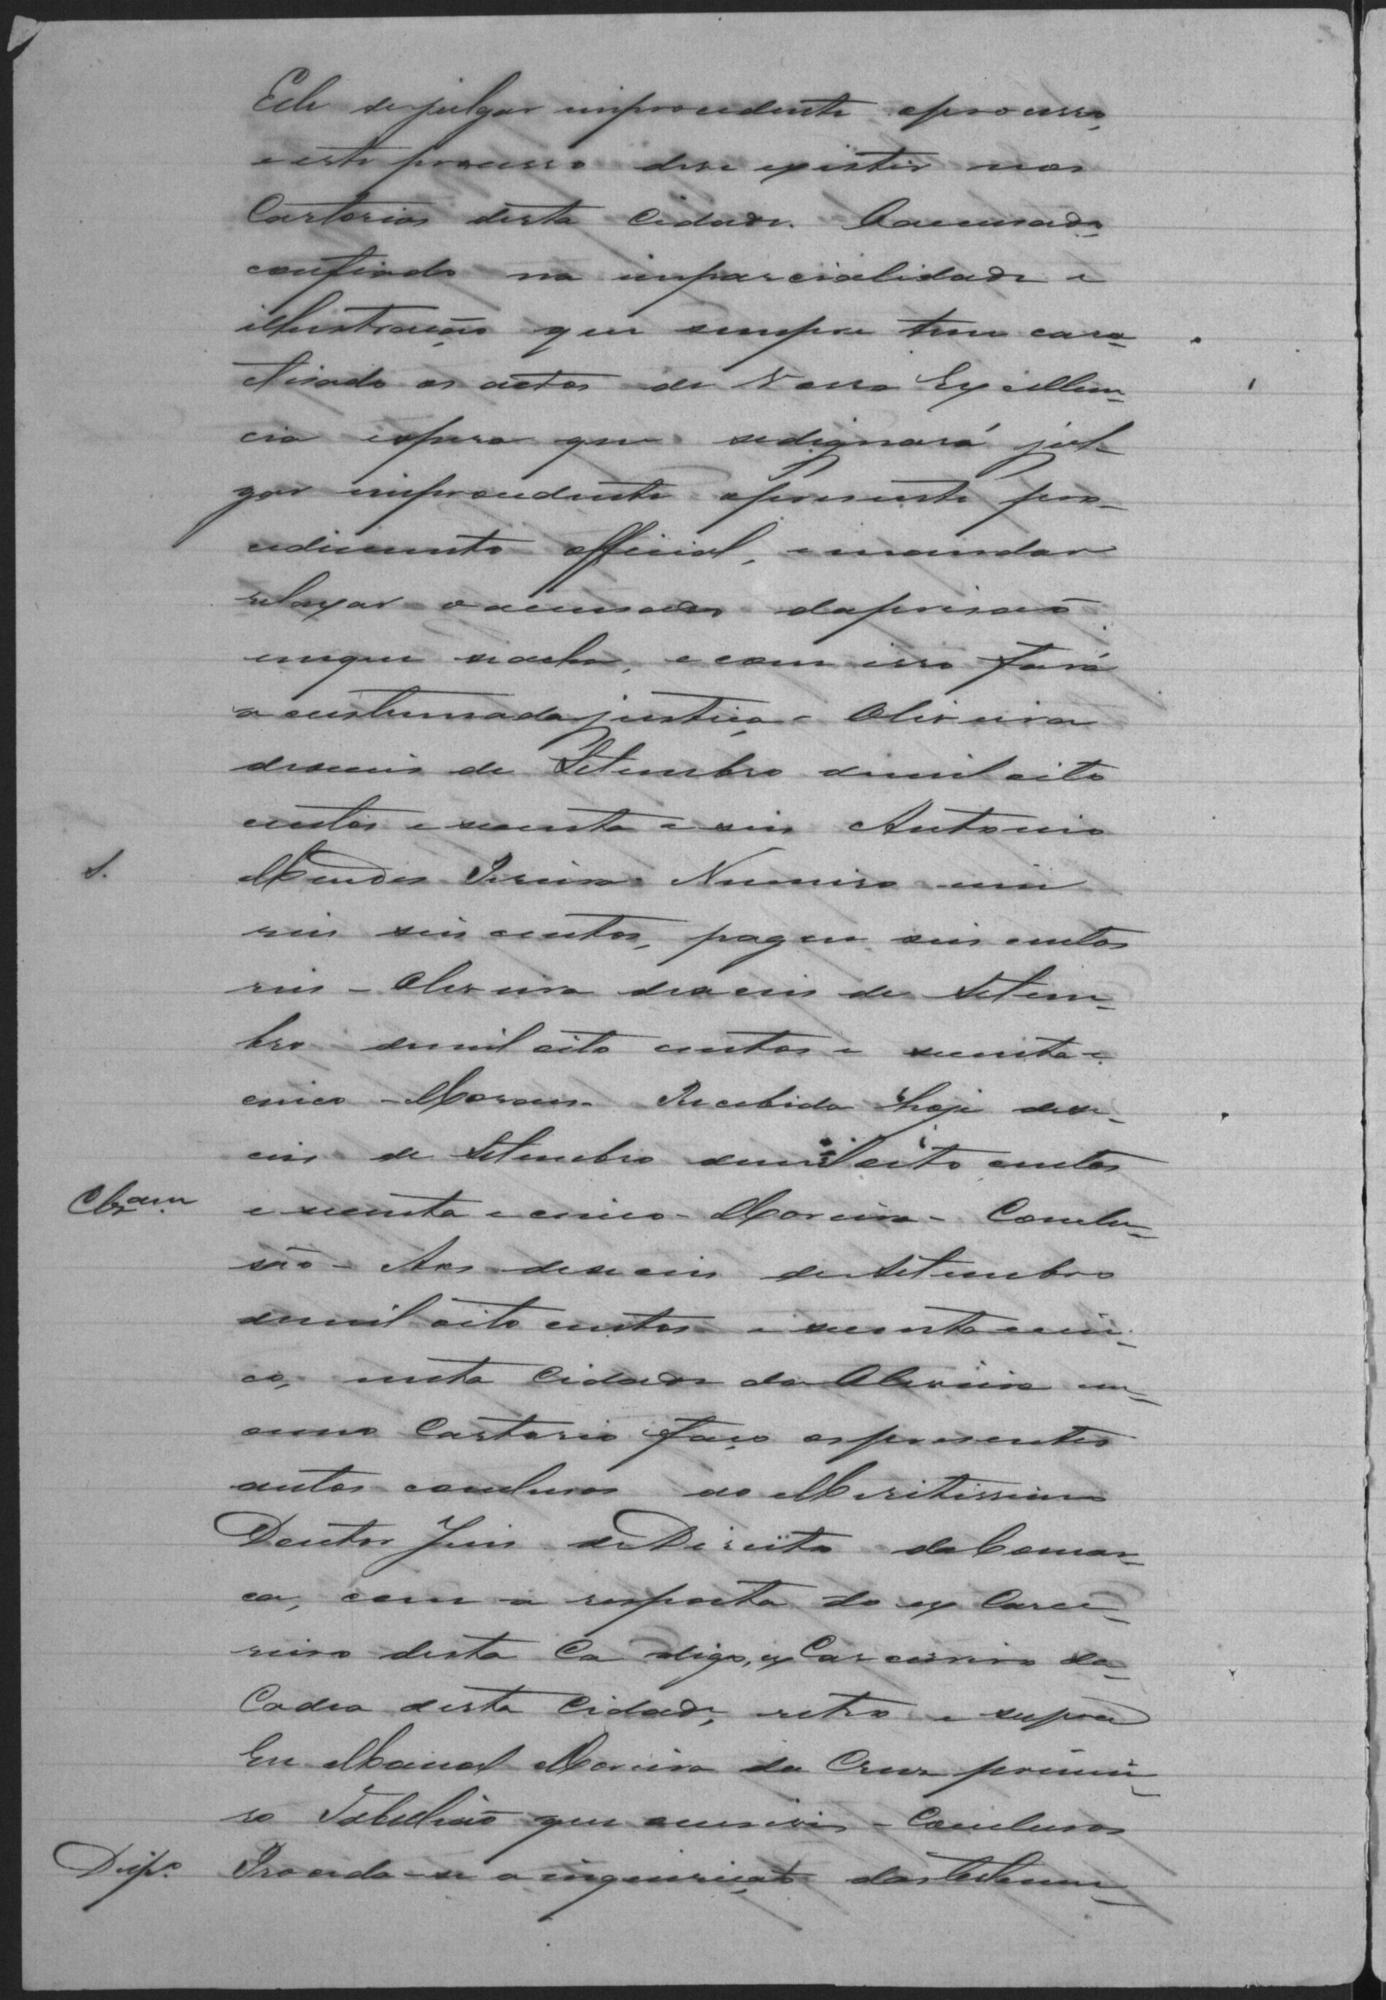 Ede se julgar improcedente o processo,
e este processo deve existir nos
Cartorios desta Cidade. O accusado
confiado na imparcialidade e
illustração que sempre tem cara-
cterisado os actos de Vossa Excellen-
cia espera que se dignará jul-
gar improcedente o presente pro-
cedimento official, e mandar
relaxar o accusado da prisão
em que se acha, e com isso fará
a custumada justiça - Oliveira
deseseis de Setembro de mil oito
centos e secenta e seis Antonio
S. Mendes Pereira Numero um
reis seis centos, pagou seis centos
reis - Oliveira deseseis de Setem-
bro de mil oito centos e secenta e
cinco - Moraes - Recebida hoje dese-
ceis de Setembro de mil oito centos
Clzam. e secenta e cinco - Moreira - Conclu-
são - Aos deseceis de Setembro
de mil oito centos e secenta e cin-
co, nesta Cidade da Oliveira em
meu Cartorio faço os presentes
autos conclusos ao Meritissimo
Doutor Juis de Direito da Comar-
ca, com a resposta do ex Carce-
reiro desta Ca digo, ex Carcereiro da
Cadea desta Cidade, retro e supra
Eu Manoel Moreira da Cruz primei-
ro Tabellião que escrevi - Conclusos
Desp.o Proceda-se a inquirição das testemu-